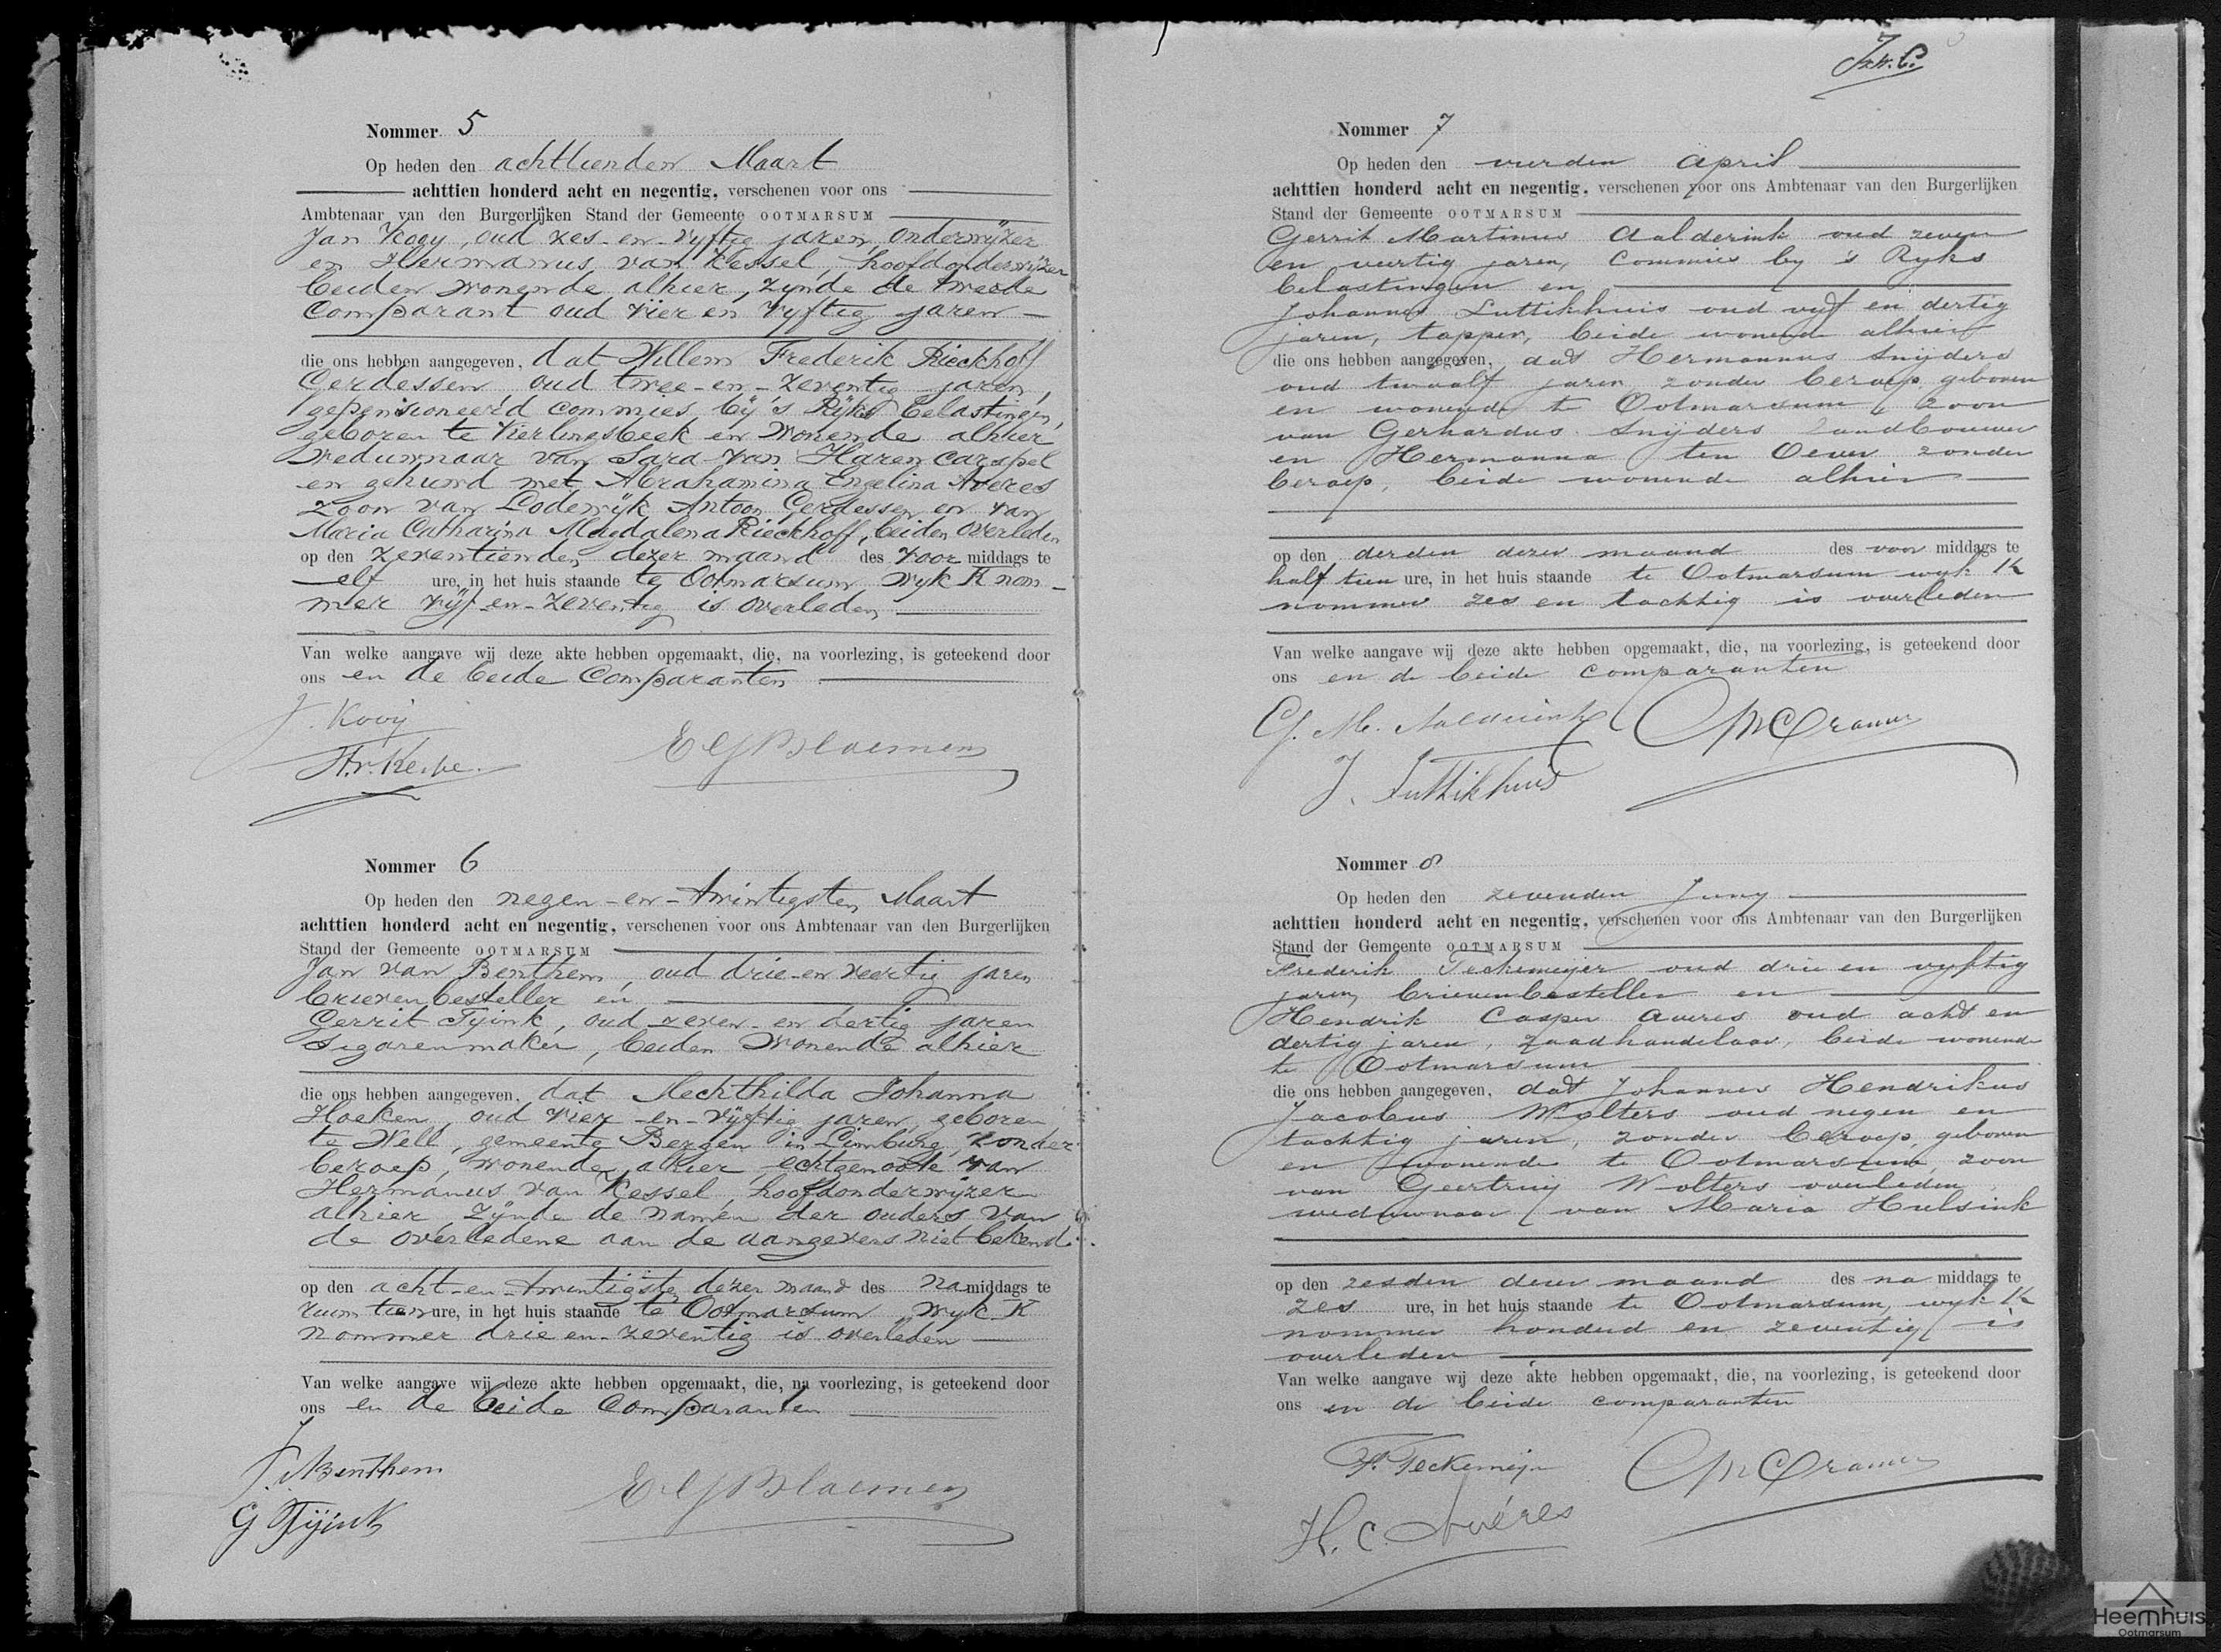 Nommer 5
Op heden den achttienden Maart
achttien honderd acht en negentig, verschenen voor ons
Ambtenaar van den Burgerlijken Stand der Gemeente OOTMARSUM
Jan Kooy, oud zes-en-vyftig jaren, onderwijzer
en Hermanus van Kessel, hoofdonderwijzer
beiden wonende alhier, zynde de tweede
Comparant oud vier en vyftig jaren
die ons hebben aangegeven, dat Willem Frederik Rieckhoff
Gerdessen, oud twee-en-zeventig jaren,
gepensioneerd commies bij 's Rijks belastingen,
geboren te Vierlingsbeek en wonende alhier
weduwnaar van Sara van Haren Carspel
en gehuwd met Abrahamina Engelina Averes
zoon van Lodewijk Antoon Gerdessen en van
Maria Catharina Magdalena Rieckhoff, beiden overleden
op den zeventienden dezer maand des voor middags te
elf ure, in het huis staande te Ootmarsum wyk K nom-
mer vijf-en-zeventig is overleden
Van welke aangave wij deze akte hebben opgemaakt, die, na voorlezing, is geteekend door
ons en de beide Comparanten
J. Kooij
Nommer 6
Op heden den negen-en-twintigsten Maart
achttien honderd acht en negentig, verschenen voor ons Ambtenaar van den Burgerlijken
Stand der Gemeente OOTMARSUM
Jan van Benthem, oud drie-en veertig jaren
brievenbesteller en
Gerrit Tyink, oud zeven-en dertig jaren
Sigarenmaker, beiden wonende alhier
die ons hebben aangegeven, dat Mechthilda Johanna
Hoeken, oud vier-en-vijftig jaren, geboren
te Well, gemeente Bergen in Limburg, zonder
beroep, wonende alhier echtgenoote van
Hermanus van Kessel, hoofdonderwijzer
alhier zijnde de namen der ouders van
de overledene aan de aangevers niet bekend
op den acht-en-twintigste dezer maand des namiddags te
ruim tien ure, in het huis staande te Ootmarsum, wyk K
nommer drie en-zeventig is overleden
Van welke aangave wij deze akte hebben opgemaakt, die, na voorlezing, is geteekend door
ons en de beide Comparanten
J. v. Benthem
G Tijink
Nommer 7
Op heden den vierden April
achttien honderd acht en negentig, verschenen voor ons Ambtenaar van den Burgerlijken
Stand der Gemeente OOTMARSUM
Gerrit Martinus Aalderink oud zeven
en veertig jaren, Commies by 's Ryks
belastingen en
Johannes Luttikhuis oud vijf en dertig
jaren, tapper, beide wonende alhier
die ons hebben aangegeven, dat Hermannus Snijders
oud twaalf jaren zonder beroep, geboren
en wonende te Ootmarsum, zoon
van Gerhardus Snijders landbouwer
en Hermanna ten Oever zonder
beroep, beide wonende alhier
op den derden dezer maand des voor middags te
half tien ure, in het huis staande te Ootmarsum wyk K
nommer zes en tachtig is overleden
Van welke aangave wij deze akte hebben opgemaakt, die, na voorlezing, is geteekend door
ons en de beide comparanten
G. M. Aalderink
J. Luttikhuis
Nommer 8
Op heden den zevenden Juny
achttien honderd acht en negentig, verschenen voor ons Ambtenaar van den Burgerlijken
Stand der Gemeente OOTMARSUM
Frederik Teckemeijer oud drie en vyftig
jaren, brievenbesteller en
Hendrik Casper Averes oud acht en
dertig jaren, zaadhandelaar, beide wonende
te Ootmarsum
die ons hebben aangegeven, dat Johannes Hendrikus
Jacobus Wolters oud negen en
tachtig jaren, zonder beroep, geboren
en wonende te Ootmarsum, zoon
van Geertruij Wolters overleden
weduwnaar van Maria Hulsink
op den zesden dezer maand des na middags te
zes ure, in het huis staande te Ootmarsum, wyk K
nommer honderd en zeventig is
overleden
Van welke aangave wij deze akte hebben opgemaakt, die, na voorlezing, is geteekend door
ons en de beide comparanten
F. Teckemeijer
H. C. Avéres
Heemhuis
Ootmarsum